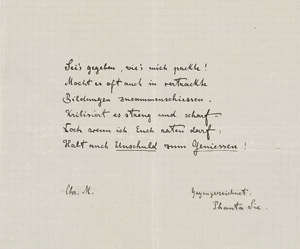 Sei's gegeben, wie's mich packte!
Mocht es oft auch in vertrackte
Bildungen zusammenschiessen.
Kritisiert es streng und scharf
Doch wenn ich Euch raten darf:
Habt auch Unschuld zum Geniessen!
Chr. M.
Gegengezeichnet.
Phanta Sie.